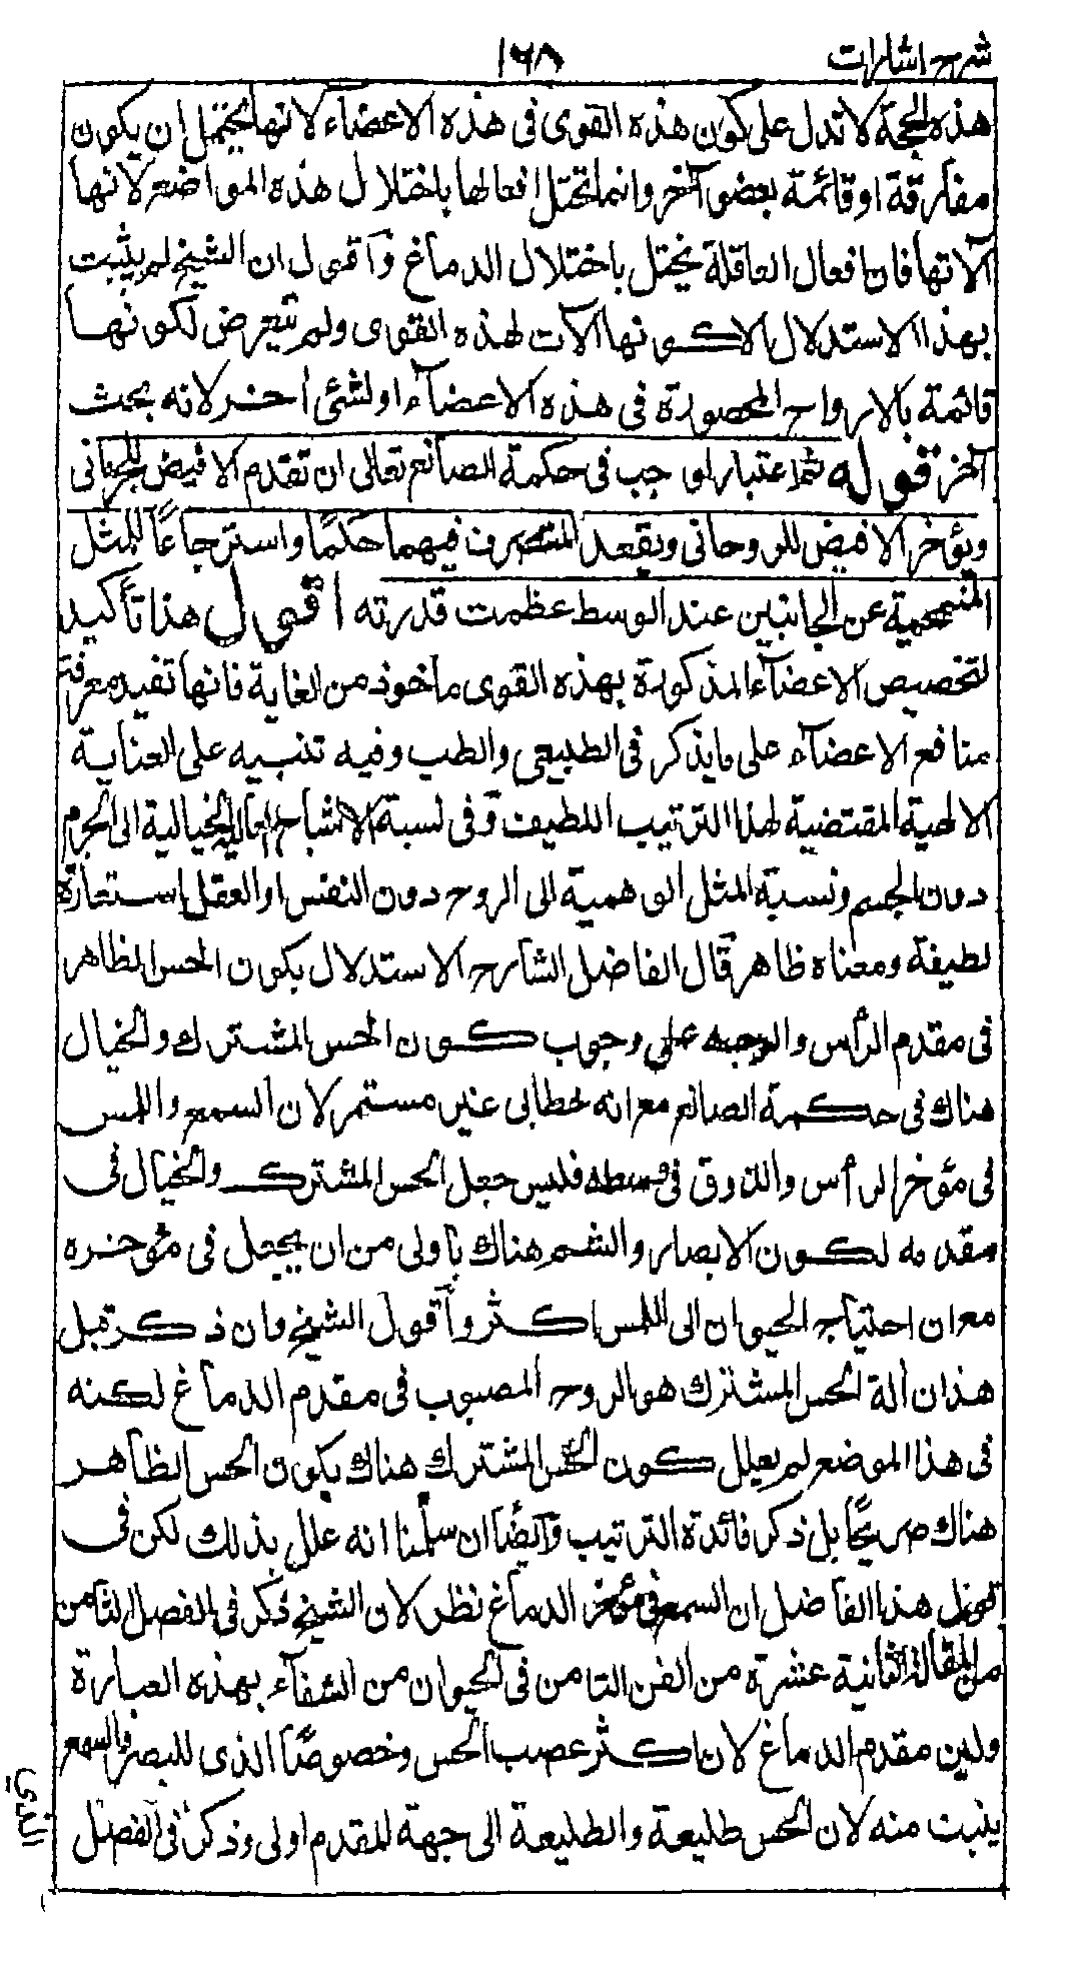 شرح اشارات
١٦٨
هذه الحجة لا تدل على كون هذه القوى فى هذه الاعضآء لانها يحتمل ان يكون
مفارقة او قائمة بعضو آخر وانما تختل افعالها باختلال هذه المواضع لانها
آلاتها فان افعال العاقلة يختل باختلال الدماغ وآقول ان الشيخ لم يثبت
بهذا الاستدلال الا كونها آلات لهذه القوى ولم يتعرض لكونها
قائمة بالارواح المحصورة فى هذه الاعضآء او لشئ آخر لانه بحث
آخر قوله ثم اعتبار لوجب فى حكمة الصانع تعالى ان تقدم الاقبض للجرمانى
ويؤخر الاقبض للروحانى ويقعد المتصرف فيهما حكمًا واسترجاعًا للمثل
المنمحية عن الجانبين عند الوسط عظمت قدرته اقول هذا تأكيد
لتخصيص الاعضآء المذكورة بهذه القوى ماخوذ من الغاية فانها تفيد معرفة
منافع الاعضآء على ما يذكر فى الطبيعى والطب وفيه تنبيه على العناية
الالهية المقتضية لهذا الترتيب اللطيف وفى نسبة الاشباح الخيالية الى الجرم
دون الجسم ونسبة المثل الوهمية الى الروح دون النفس او العقل استعارة
لطيفة ومعناه ظاهر قال الفاضل الشارح الاستدلال بكون الحس الظاهر
فى مقدم الرأس والوجه على وجوب كون الحس المشترك والخيال
هناك فى حكمة الصانع مع انه خطابى غير مستمر لان السمع واللمس
فى مؤخر الرأس والذوق فى وسطه فليس جعل الحس المشترك والخيال فى
مقدمه لكون الابصار والشم هناك باولى من ان يجعل فى مؤخره
مع ان احتياج الحيوان الى اللمس اكثر وآقول الشيخ وان ذكر قبل
هذا ان آلة الحس المشترك هو الروح المصبوب فى مقدم الدماغ لكنه
فى هذا الموضع لم يعلل كون الحس المشترك هناك بكون الحس الظاهر
هناك صريحًا بل ذكر فائدة الترتيب وآيضًا ان سلمنا انه علل بذلك لكن فى
قول هذا الفاضل ان السمع فى مؤخر الدماغ نظر لان الشيخ ذكر فى الفصل الثامن
من المقالة الثانية عشرة من الفن الثامن فى الحيوان من الشفآء بهذه العبارة
ولين مقدم الدماغ لان اكثر عصب الحس وخصوصًا الذى للبصر والسمع
ينبت منه لان الحس طليعة والطليعة الى جهة المقدم اولى وذكر فى الفصل
الذى